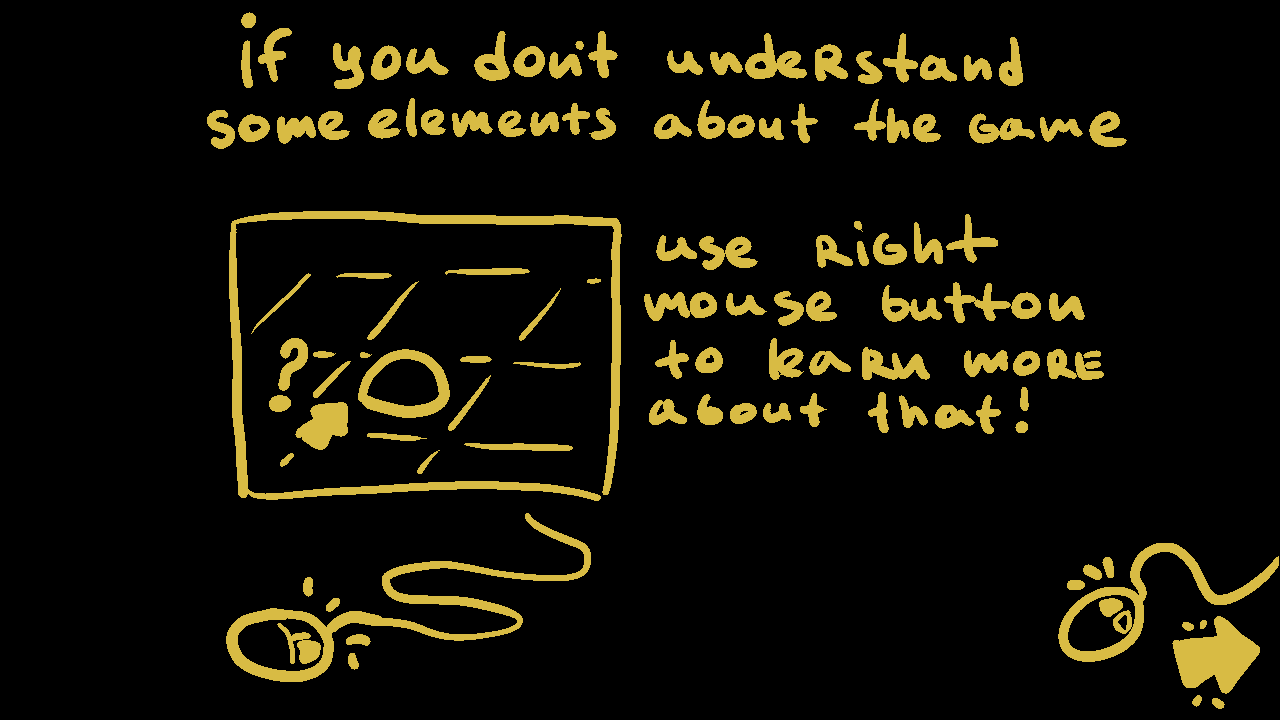 if you don't understand
some elements about the game
use Right
mouse button
to leaRn moRE
about that!
?